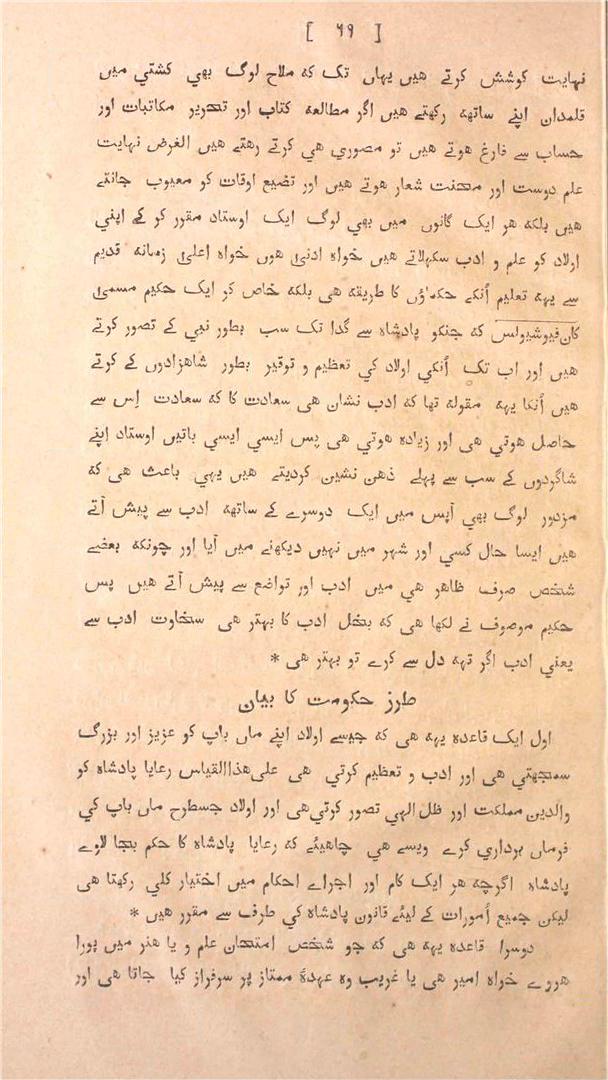 [ ۶۹ ]
نہایت کوشش کرتے هیں یہاں تک که ملاح لوگ بهي کشتي میں
قلمدان اپنے ساتهه رکهتے هیں اگر مطالعه کتاب اور تحریر مکاتبات اور
حساب سے فارغ هوتے هیں تو مصوري هي کرتے رهتے هیں الغرض نہایت
علم دوست اور محنت شعار هوتے هیں اور تضیع اوقات کو معیوب جانتے
هیں بلکه هر ایک گانوں میں بهي لوگ ایک اوستاد مقرر کو کے اپني
اولاد کو علم و ادب سکہلاتے هیں خواه ادنیٰ هوں خواه اعلیٰ زمانه قدیم
سے یہه تعلیم اُنکے حکماؤں کا طریقه هی بلکه خاص کر ایک حکیم مسمیٰ
کان‌فیوشیولس که جنکو پادشاه سے گدا تک سب بطور نبي کے تصور کرتے
هیں اور اب تک اُنکي اولاد کي تعظیم و توقیر بطور شاهزادوں کے کرتے
هیں اُنکا یہه مقوله تها که ادب نشان هی سعادت کا که سعادت اِس سے
حاصل هوتي هی اور زیاده هوتي هی پس ایسي ایسي باتیں اوستاد اپنے
شاگردوں کے سب سے پہلے ذهن نشین کردیتے هیں یہي باعث هی که
مزدور لوگ بهي آپس میں ایک دوسرے کے ساتهه ادب سے پیش آتے
هیں ایسا حال کسي اور شہر میں نہیں دیکهنے میں آیا اور چونکه بعضے
شخص صرف ظاهر هي میں ادب اور تواضع سے پیش آتے هیں پس
حکیم موصوف نے لکها هی که بخل ادب کا بہتر هی سخاوت ادب سے
یعني ادب اگر تهه دل سے کرے تو بہتر هی *
طرز حکومت کا بیان
اول ایک قاعده یہه هی که جیسے اولاد اپنے ماں باپ کو عزیز اور بزرگ
سمجهتي هی اور ادب و تعظیم کرتي هی علی‌هذاالقیاس رعایا پادشاه کو
والدین مملکت اور ظل الہي تصور کرتي‌هی اور اولاد جسطرح ماں باپ کي
فرماں برداري کرے ویسے هي چاهیئے که رعایا پادشاه کا حکم بجا لاوے
پادشاه اگرچه هر ایک کام اور اجراے احکام میں اختیار کلي رکهتا هی
لیکن جمیع اُمورات کے لیئے قانون پادشاه کي طرف سے مقرر هیں *
دوسرا قاعده یہه هی که جو شخص امتحان علم و یا هنر میں پورا
هووے خواه امیر هی یا غریب وه عہدهٔ ممتاز پر سرفراز کیا جاتا هی اور